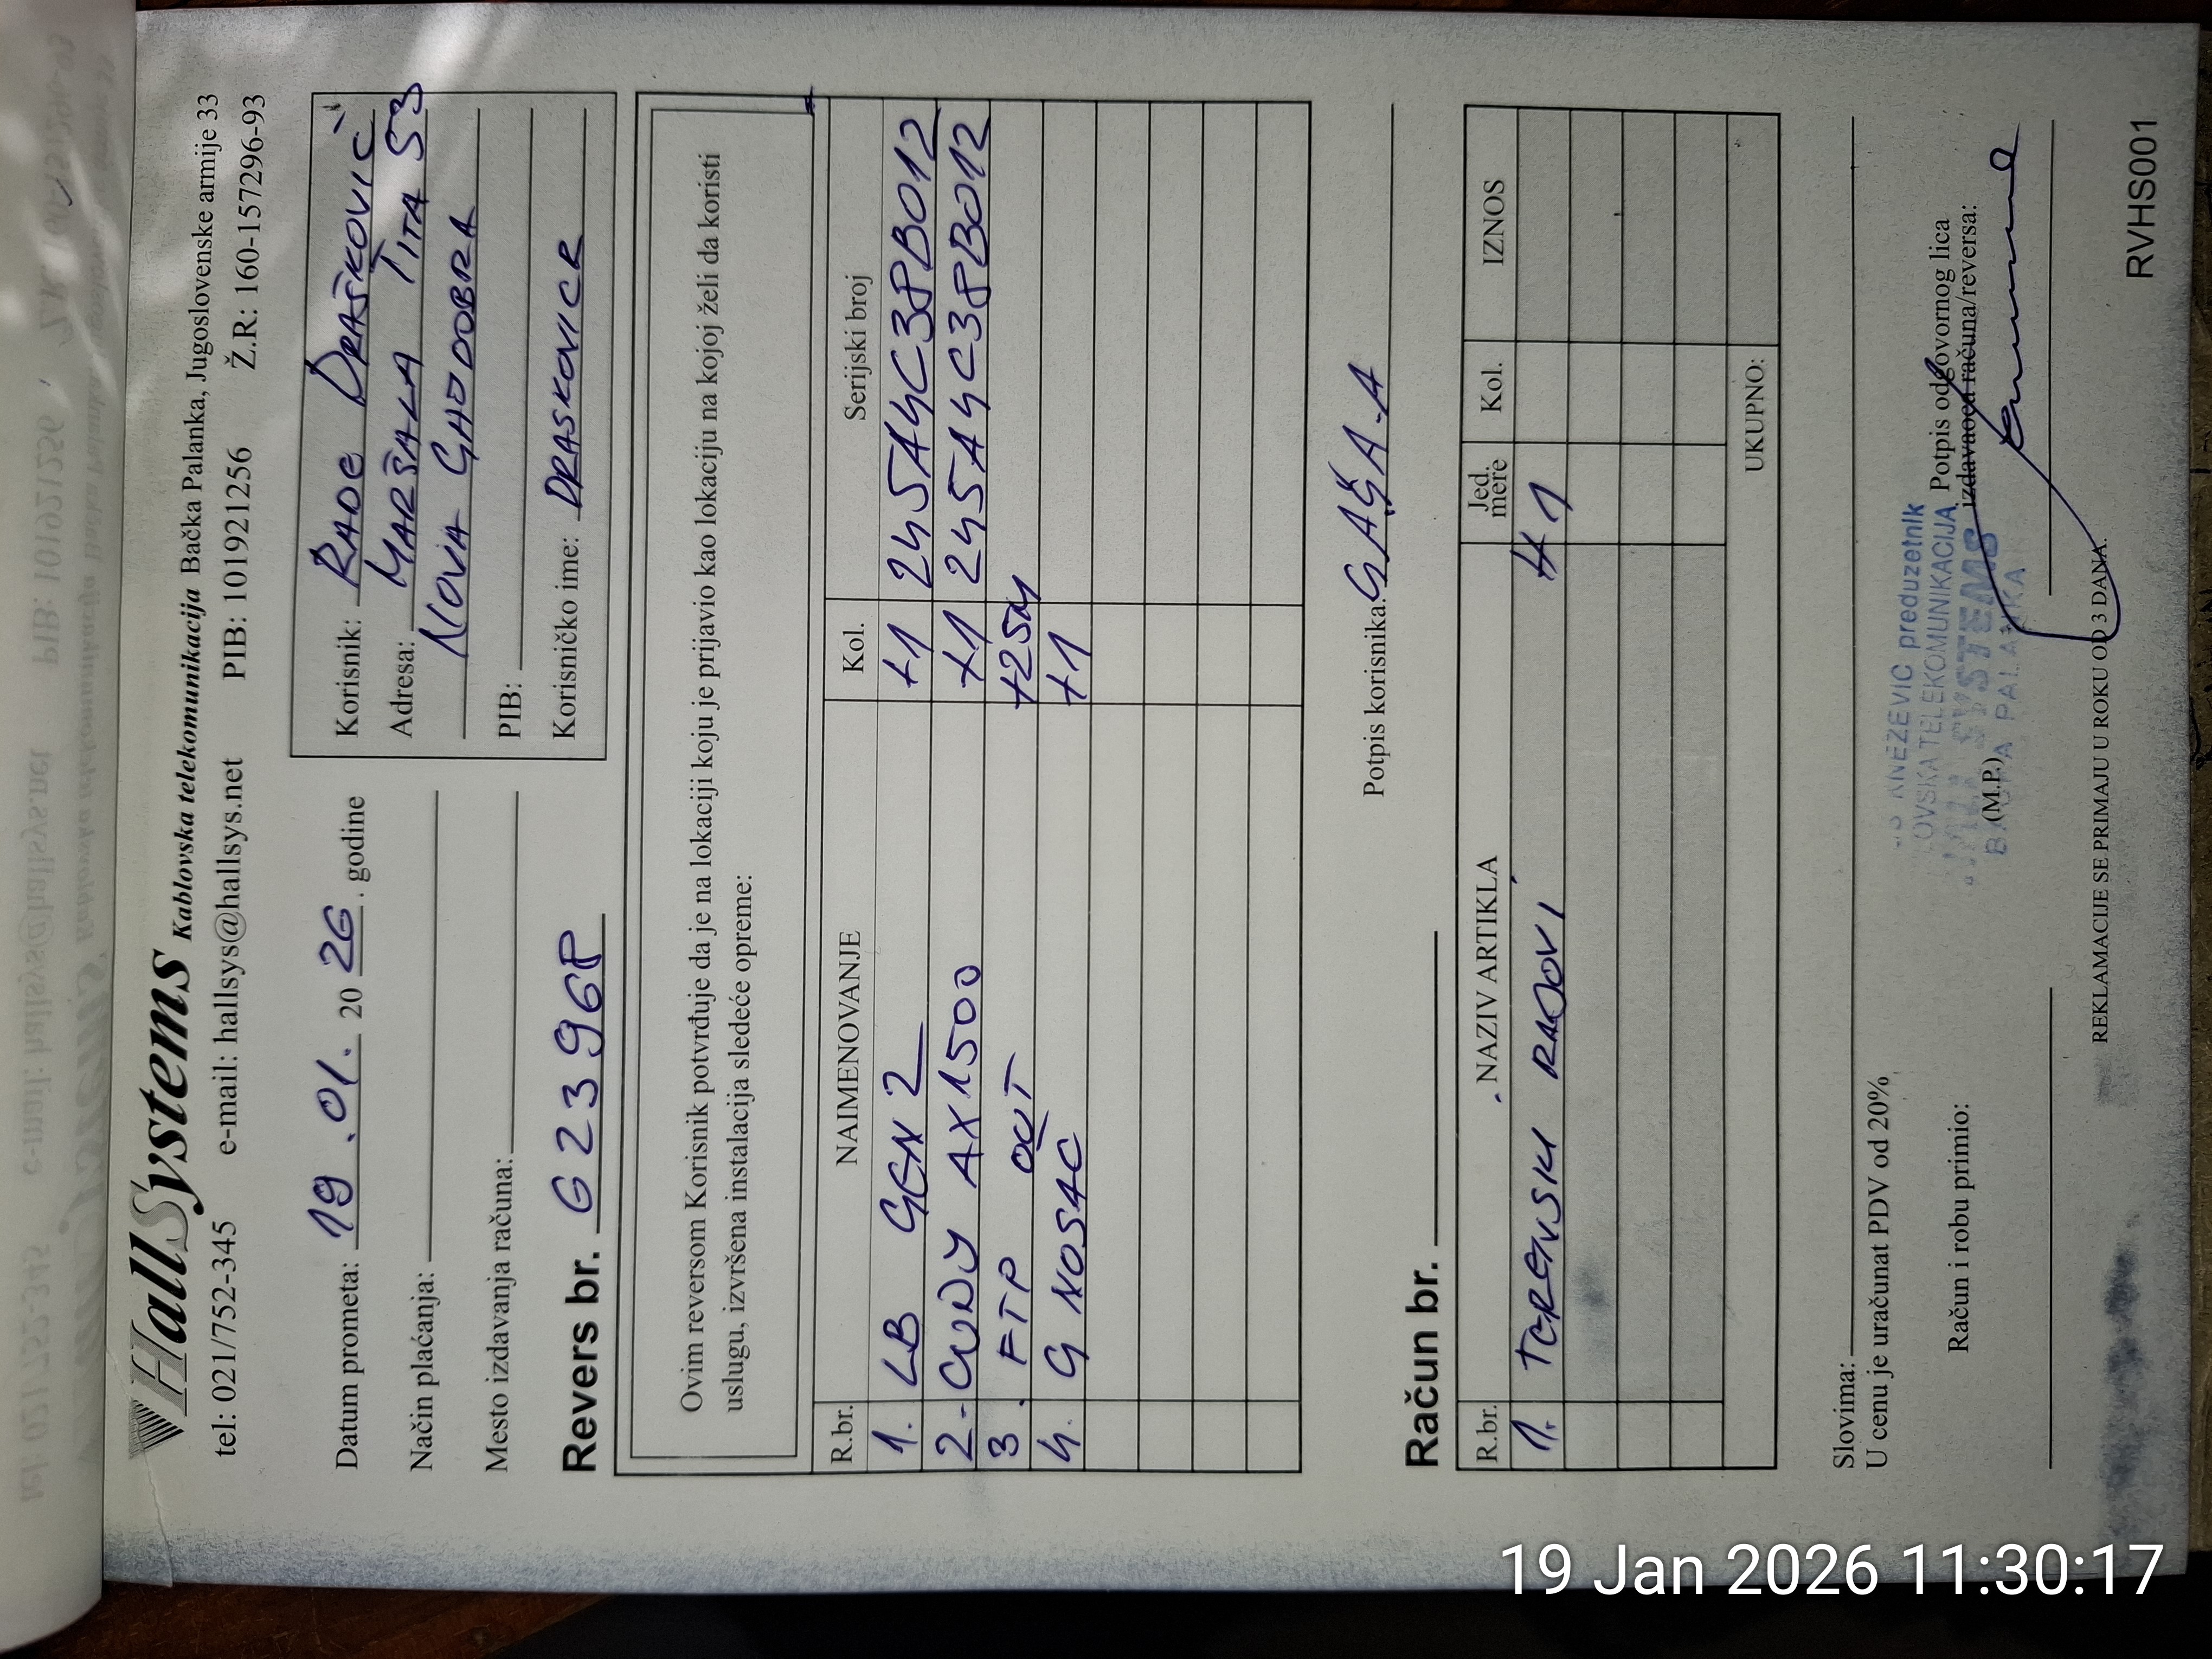 HallSystems Kablovska telekomunikacija Bačka Palanka, Jugoslovenske armije 33
tel: 021/752-345 e-mail: hallsys@hallsys.net PIB: 101921256 Ž.R: 160-157296-93
Datum prometa: 19.01. 20 26. godine
Način plaćanja:
Mesto izdavanja računa:
Korisnik: RADE DRAŠKOVIĆ
Adresa: MARŠALA TITA 53
NOVA GAJDOBRA
PIB:
Korisničko ime: DRASKOVICR
Revers br. G23968
Ovim reversom Korisnik potvrđuje da je na lokaciji koju je prijavio kao lokaciju na kojoj želi da koristi
uslugu, izvršena instalacija sledeće opreme:
R.br. NAIMENOVANJE Kol. Serijski broj
1. LB GEN 2 +1 245A4C38B012
2. CUDY AX1500 +1 245A4C38B012
3. FTP OUT +25M
4. G NOSAC +1
Potpis korisnika:
Račun br.
R.br. NAZIV ARTIKLA Jed. mere Kol. IZNOS
1. TERENSKI RADOVI 1
UKUPNO:
Slovima:
U cenu je uračunat PDV od 20%
Račun i robu primio:
(M.P.)
preduzetnik
TELEKOMUNIKACIJA
SYSTEMS
PALANKA
Potpis odgovornog lica
izdavaoca računa/reversa:
REKLAMACIJE SE PRIMAJU U ROKU OD 3 DANA.
RVHS001
19 Jan 2026 11:30:17